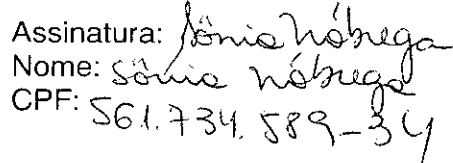 Assinatura: Sônia Nóbrega
Nome: Sônia Nóbrega
CPF: 561.734.589-34